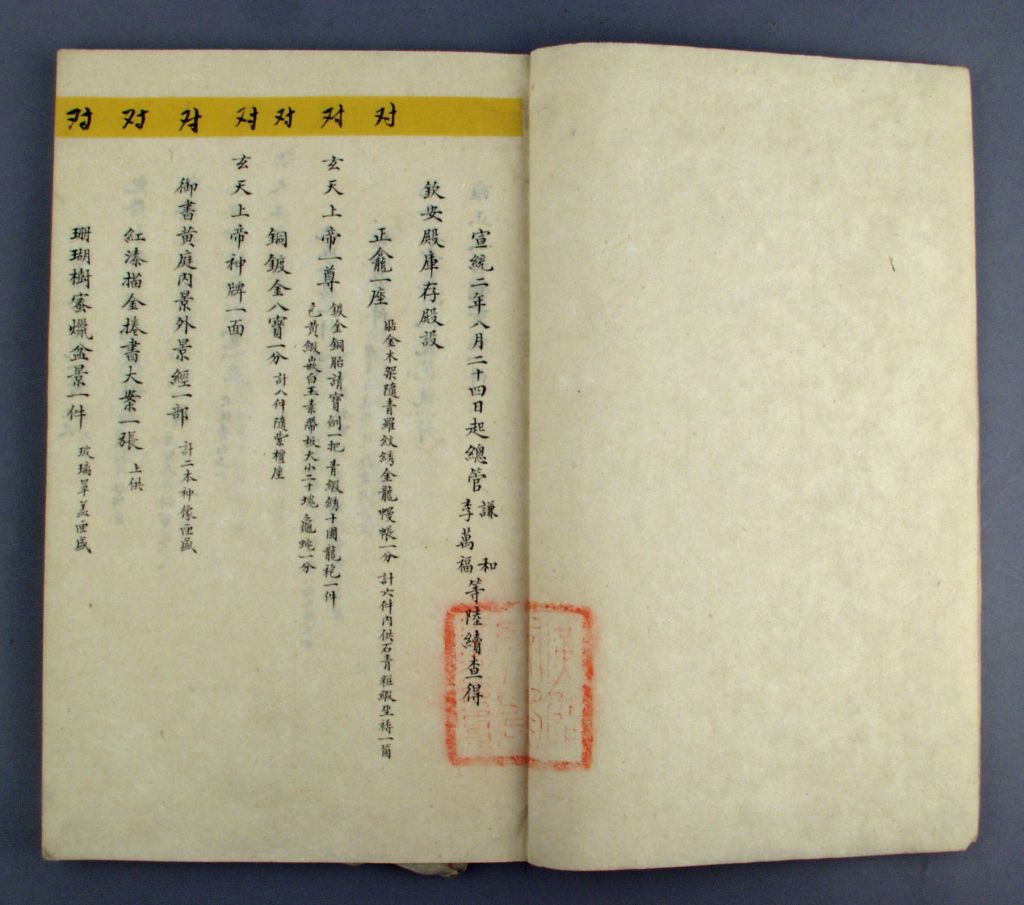 宣統二年八月二十四日起總管謙和李萬福等陸續查得
欽安殿庫存殿設
对
正龕一座
貼金木架隨青羅紋綉金龍幔帳一分計六件內供石青粧緞坐褥一箇
对
玄天上帝一尊
鍍金銅胎請寶劍一把青緞綉十團龍袍一件
色黃緞嵌白玉素帶板大小二十塊龜蛇一分
对
銅鍍金八寶一分
計八件隨紫檀座
对
玄天上帝神牌一面
对
御書黃庭內景外景經一部
計二本神像匣盛
对
紅漆描金捲書大案一張
上供
对
珊瑚樹蜜蠟盆景一件
玻璃罩蓋匣盛